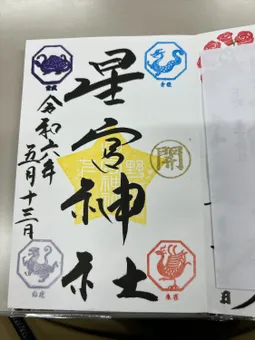 星宮神社
開
令和六年
五月十三日
玄武
青龍
白虎
朱雀